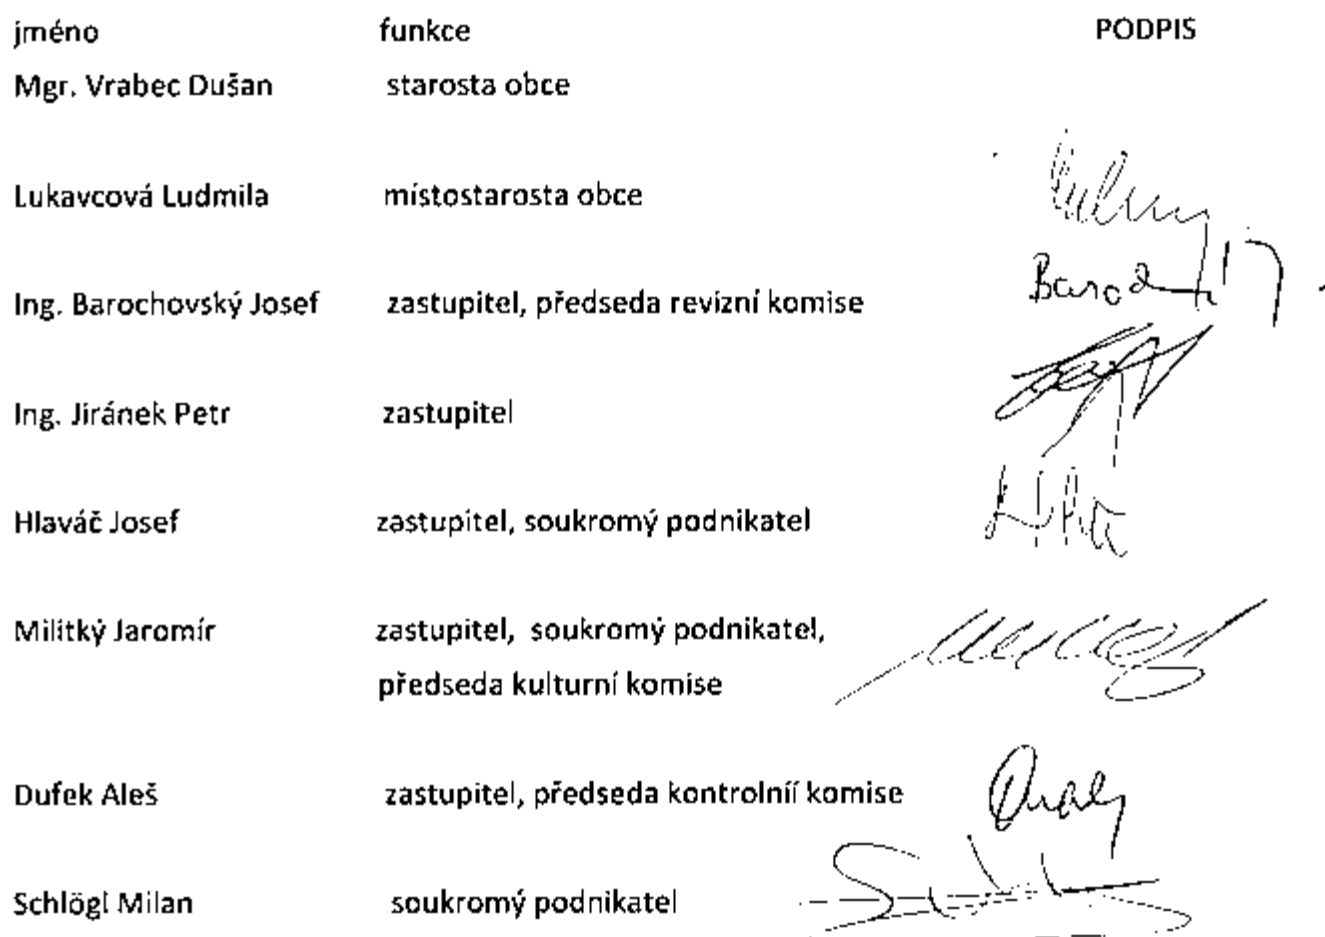 jméno funkce PODPIS
Mgr. Vrabec Dušan starosta obce
Lukavcová Ludmila místostarosta obce
Ing. Barochovský Josef zastupitel, předseda revizní komise
Ing. Jiránek Petr zastupitel
Hlaváč Josef zastupitel, soukromý podnikatel
Militký Jaromír zastupitel, soukromý podnikatel,
předseda kulturní komise
Dufek Aleš zastupitel, předseda kontrolníí komise
Schlögl Milan soukromý podnikatel